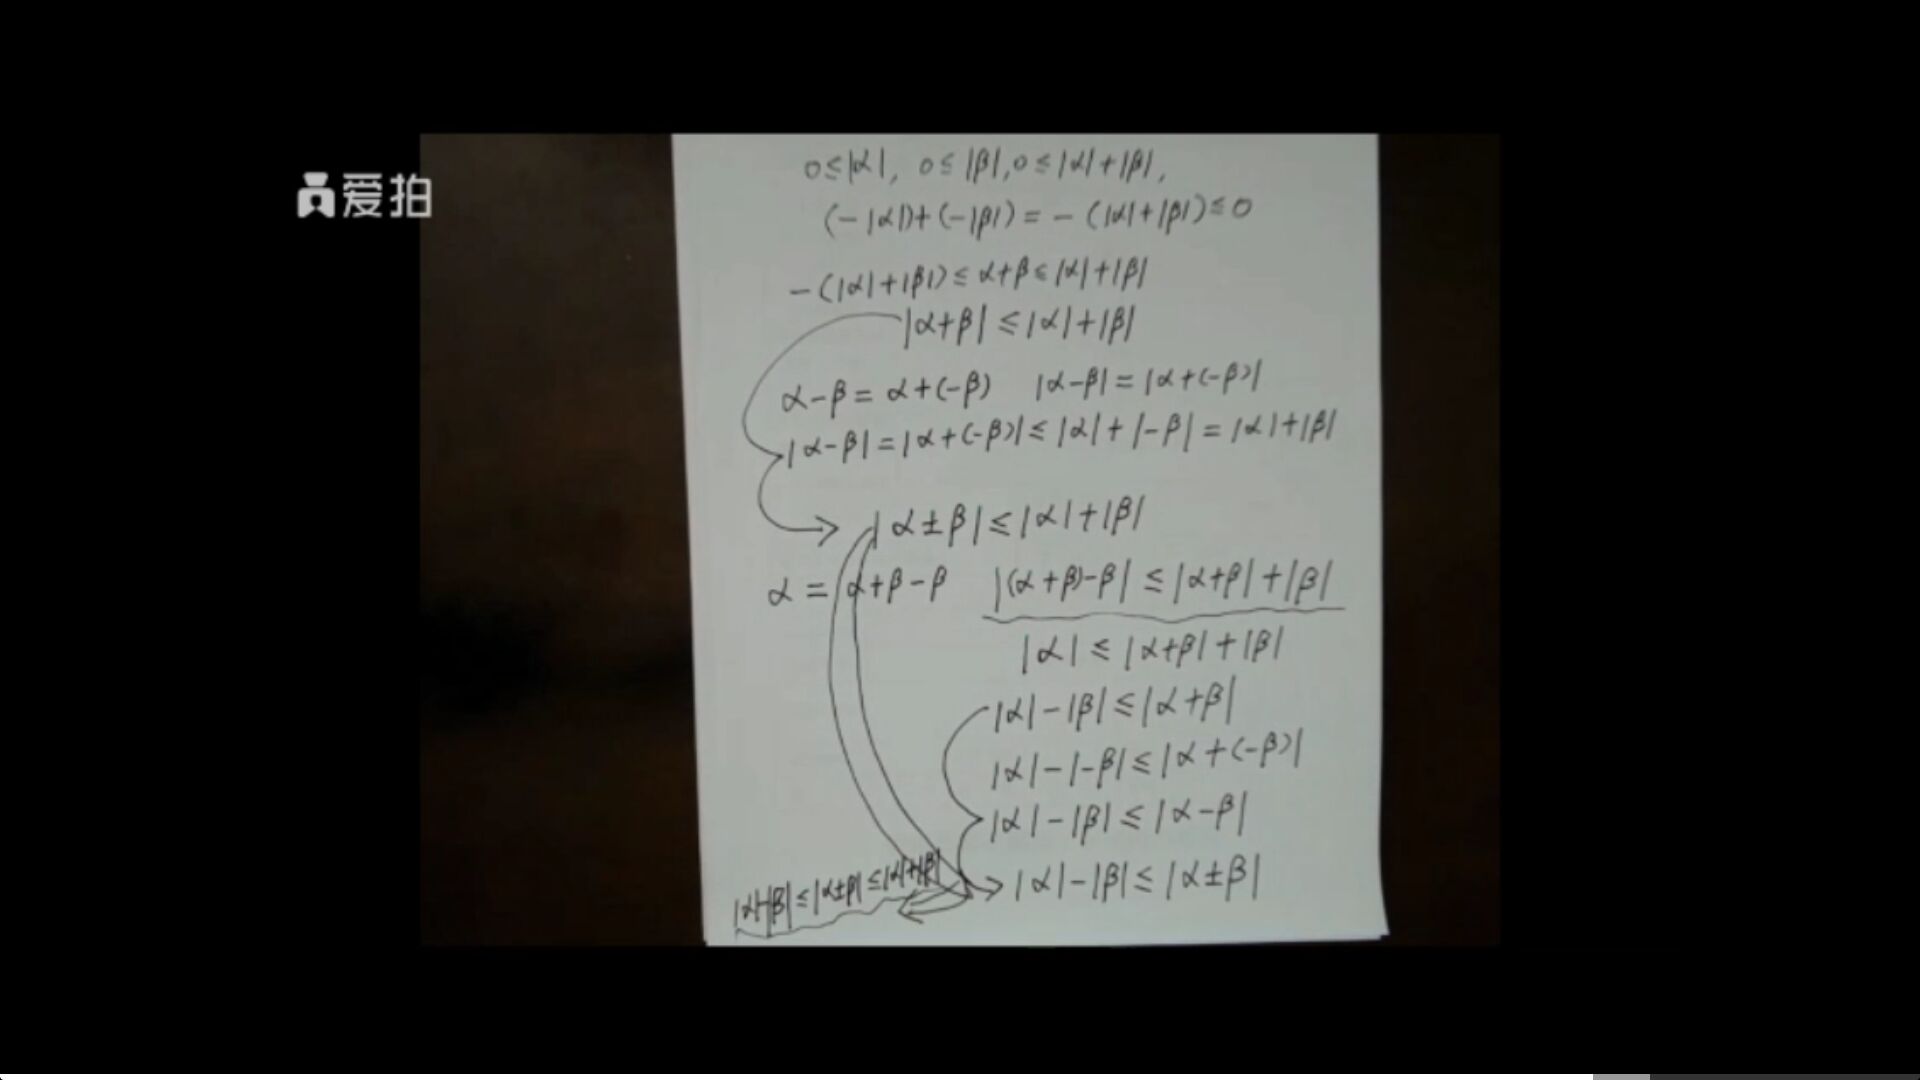 爱拍
0≤|α|, 0≤|β|, 0≤|α|+|β|,
(-|α|)+(-|β|)=-(|α|+|β|)≤0
-(|α|+|β|)≤α+β≤|α|+|β|
|α+β|≤|α|+|β|
α-β=α+(-β) |α-β|=|α+(-β)|
|α-β|=|α+(-β)|≤|α|+|-β|=|α|+|β|
|α±β|≤|α|+|β|
α=α+β-β |(α+β)-β|≤|α+β|+|β|
|α|≤|α+β|+|β|
|α|-|β|≤|α+β|
|α|-|-β|≤|α+(-β)|
|α|-|β|≤|α-β|
|α|-|β|≤|α±β|
|α|-|β|≤|α±β|≤|α|+|β|